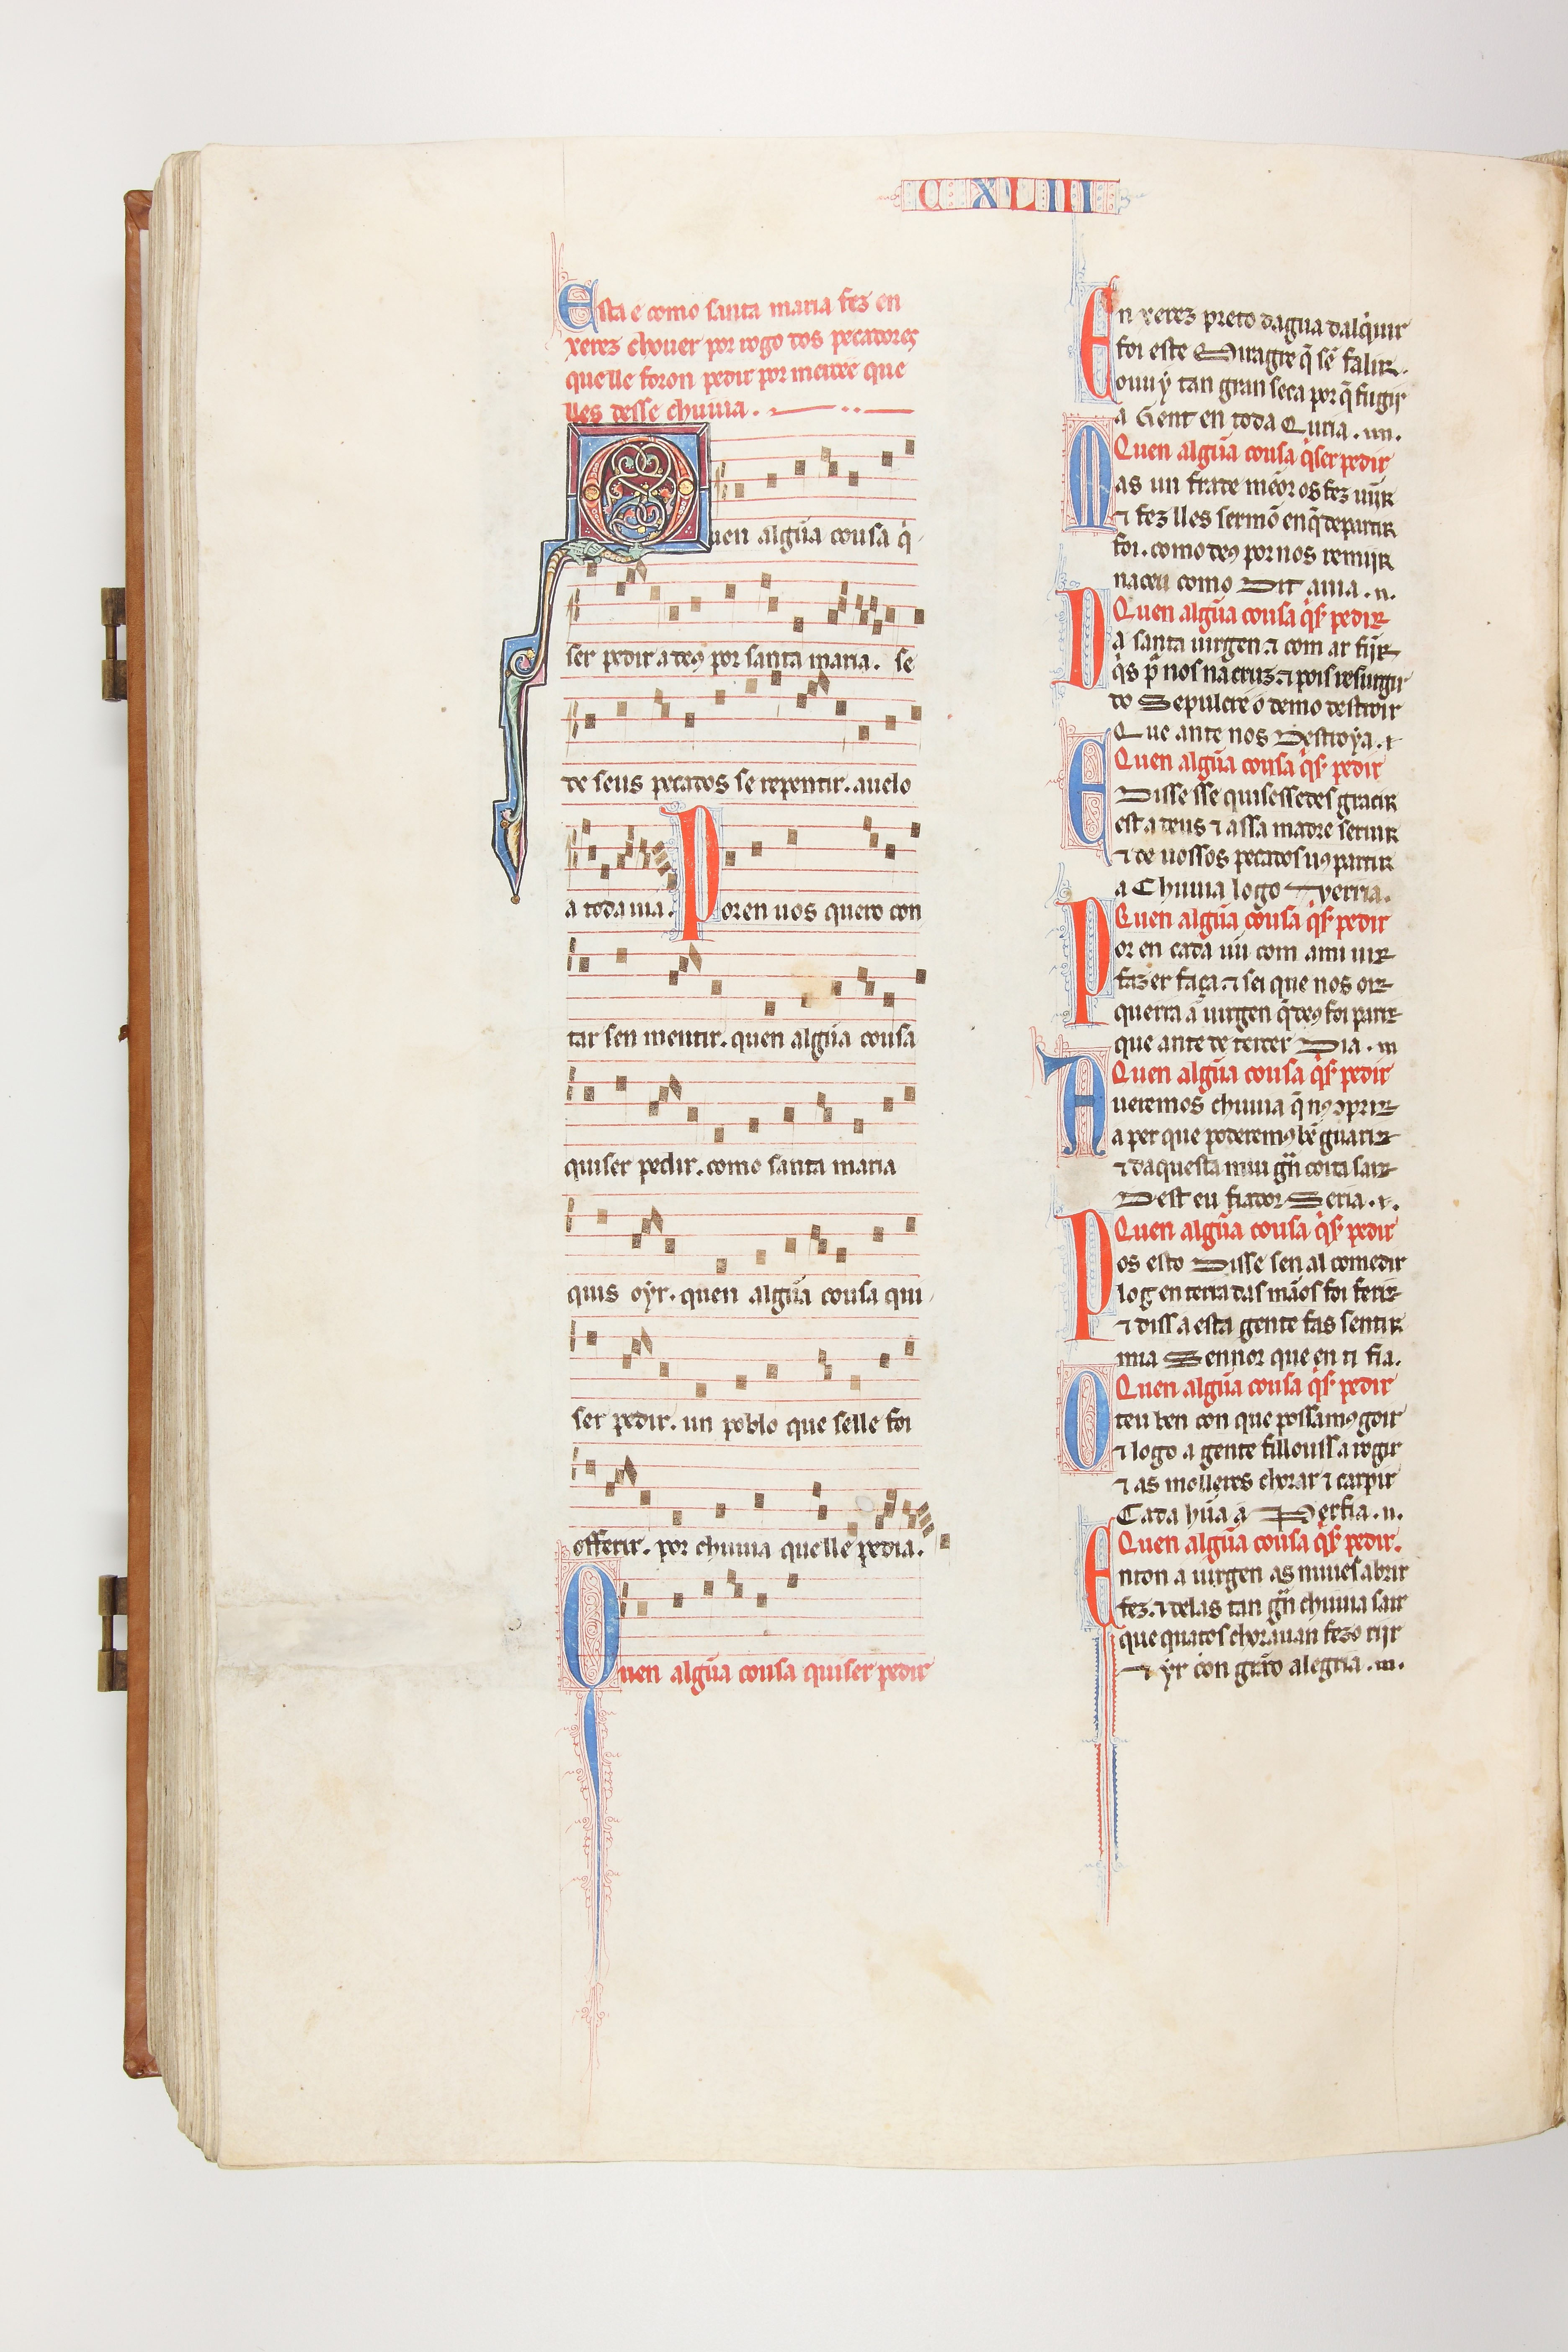 CXLIII
Esta e como santa maria fez en
xerez chouer por rogo dos pecadores
quelle foron pedir por mercee que
lles desse chuuia.
Quen algũa cousa q̇
ser pedir a deꝰ por santa maria. se
de seus pecados se repentir. auelo
a toda uia. Poren uos quero con
tar sen mentir. quen algũa cousa
quiser pedir. como santa maria
quis oyr. quen algũa cousa qui
ser pedir. un poblo que selle foi
offerir. por chuuia quelle pedia.
Quen algũa cousa quiser pedir
En xerez preto dagua dalq̇uir
foi este Miragre q̃ sẽ falir.
ouuy tan gran seca por q̃ fugir
a Gent en toda Queria. un.
Quen algũa cousa q̇ser pedir
Mas un frate mẽor os fez uĩjr
⁊ fez lles sermõ en q̃ departir
foi. como deꝰ por nos remĩjr
naceu como Dit auia. n.
Quen algũa cousa q̇s̃ pedir
Da santa uirgen ⁊ com ar fĩjr
q̇s p̃ nos na cruz. ⁊ pois resurgir
do Sepulcre o demo destroir
Que ante nos Destroya. e
Quen algũa cousa q̇s̃ pedir
E Disse sse quisessedes gracir
est a deus ⁊ a ssa madre seruir
⁊ de uossos pecados uꝰ partir
a Chuuia logo Uerria.
Quen algũa cousa q̇s̃ pedir
Por en cada ũu com a mi uir
fazer faça ⁊ sei que nos oir
querra a uirgen q̃ deꝰ foi parir
que ante de tercer Dia. m
Quen algũa cousa q̇s̃ pedir
Aueremos chuuia q̃ nꝰ ꝯprir
a per que poderemꝰ bẽ guarir
⁊ daquesta mui gñ coita sair
Dest eu fiador Seria. e.
Quen algũa cousa q̇s̃ pedir
Pos esto Disse sen al comedir
log en terra das mãos foi ferir
⁊ diss a esta gente fas sentir
mia Sennor que en ti fia.
Quen algũa cousa q̇s̃ pedir
O teu ben con que possamꝰ goir
⁊ logo a gente fillouss a rogir
⁊ as molleres chorar ⁊ carpir
Cada hũa a Perfia. n.
Quen algũa cousa q̇s̃ pedir.
Enton a uirgen as nuues abrir
fez. ⁊ delas tan gñ chuuia sair
que quatos chorauan fezo rijr
⁊ yr con grãd alegria. m.